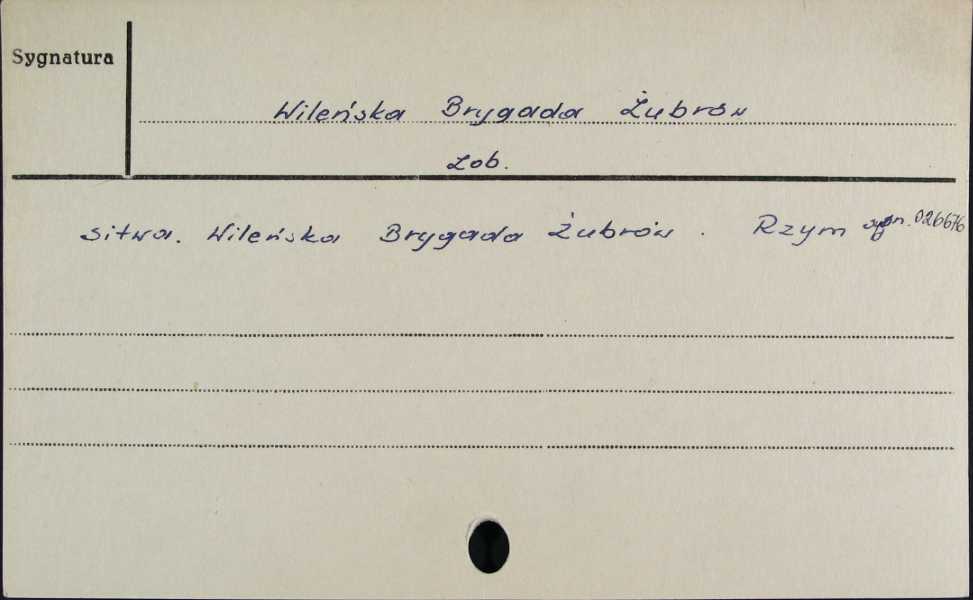 Sygnatura
Wileńska Brygada Żubrów
Zob.
Sitwa. Wileńska Brygada Żubrów. Rzym sygn. 026676